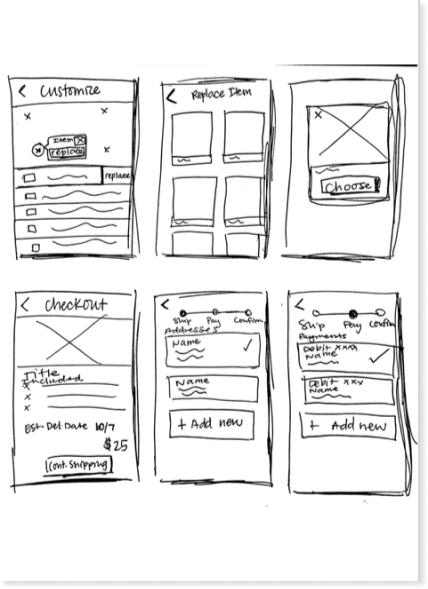 < Customize
Item
replace
replace
< Replace Item
Choose
< Checkout
Title
Included
Est. Del Date 10/7
$25
Cont. Shipping
<
Ship Pay Confirm
Addresses
Name
Name
+ Add new
<
Ship Pay Confirm
Payments
Debit xxx
Name
Debit xxx
Name
+ Add new